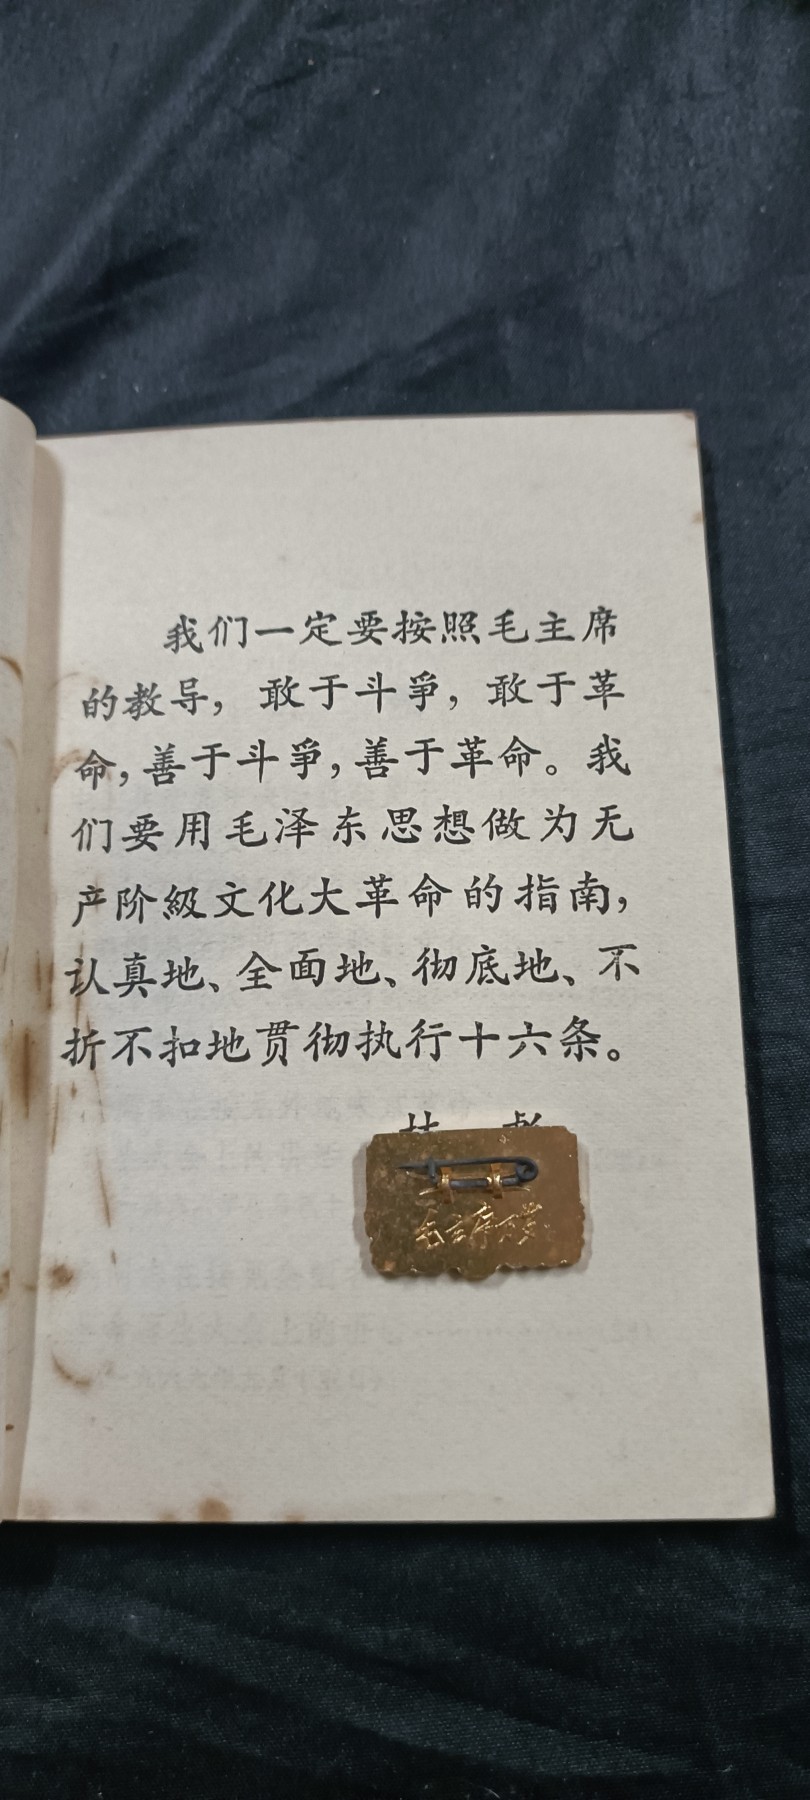 我们一定要按照毛主席
的教导，敢于斗爭，敢于革
命，善于斗爭，善于革命。我
们要用毛泽东思想做为无
产阶級文化大革命的指南，
认真地、全面地、彻底地、不
折不扣地贯彻执行十六条。
林 彪
毛主席万岁